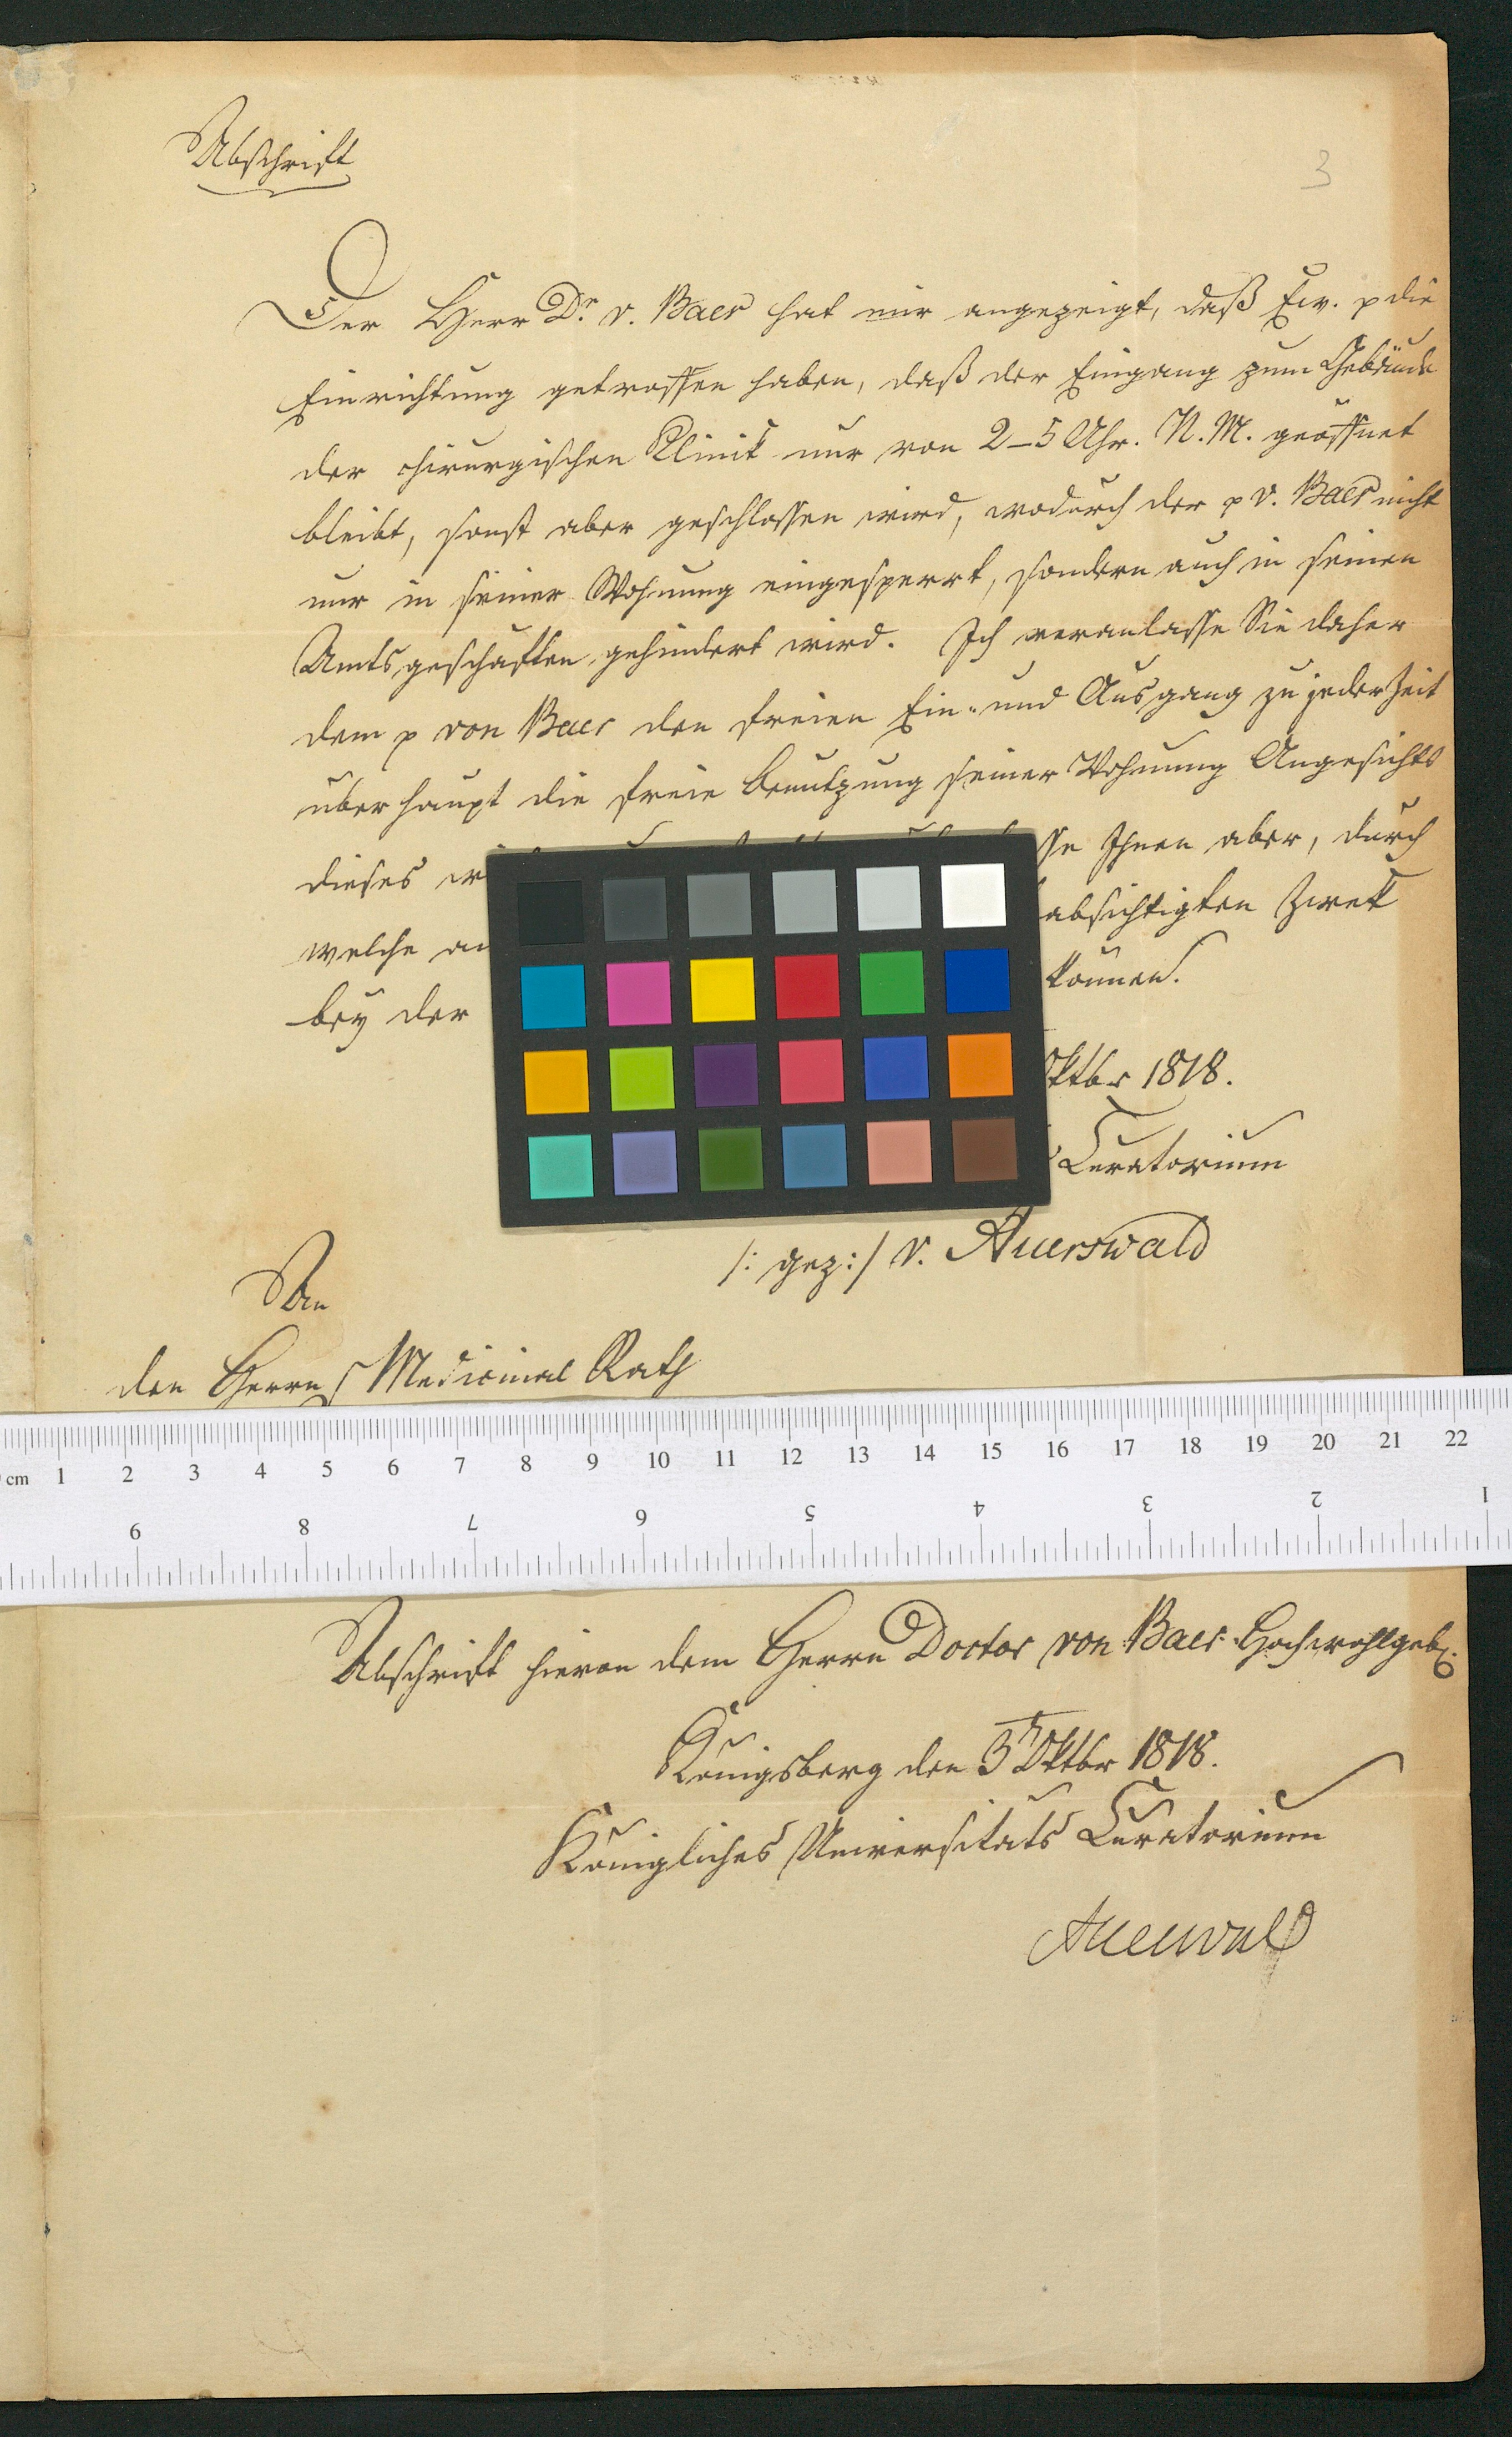 Abschrift
3
Der Herr Dr. v. Baer hat mir angezeigt, daß Ew. p die
Einrichtung getroffen haben, daß der Eingang zum Gebäude
der chirurgischen Klinik nur von 2–5 Uhr. N. M. geöffnet
bleibt, sonst aber geschlossen wird, wodurch der p v. Baer nicht
nur in seiner Wohnung eingesperrt, sondern auch in seinen
Amtsgeschäften gehindert wird. Ich veranlasse Sie daher
dem p von Baer den freien Ein- und Ausgang zu jeder Zeit
überhaupt die freie Benutzung seiner Wohnung Angesichts
dieses Ihnen aber, durch
welche absichtigten Zwek
bey der können.
Oktbr 1818.
Curatorium
/: gez :/ v. Auerswald
An
den Herrn Medicinal Rath
cm 1 2 3 4 5 6 7 8 9 10 11 12 13 14 15 16 17 18 19 20 21 22
9 8 7 6 5 4 3 2 1
Abschrift hievon dem Herrn Doctor von Baer Hochwohlgeb.
Königsberg den 3t Oktbr 1818.
Königliches Universitäts Curatorium
Auerswald